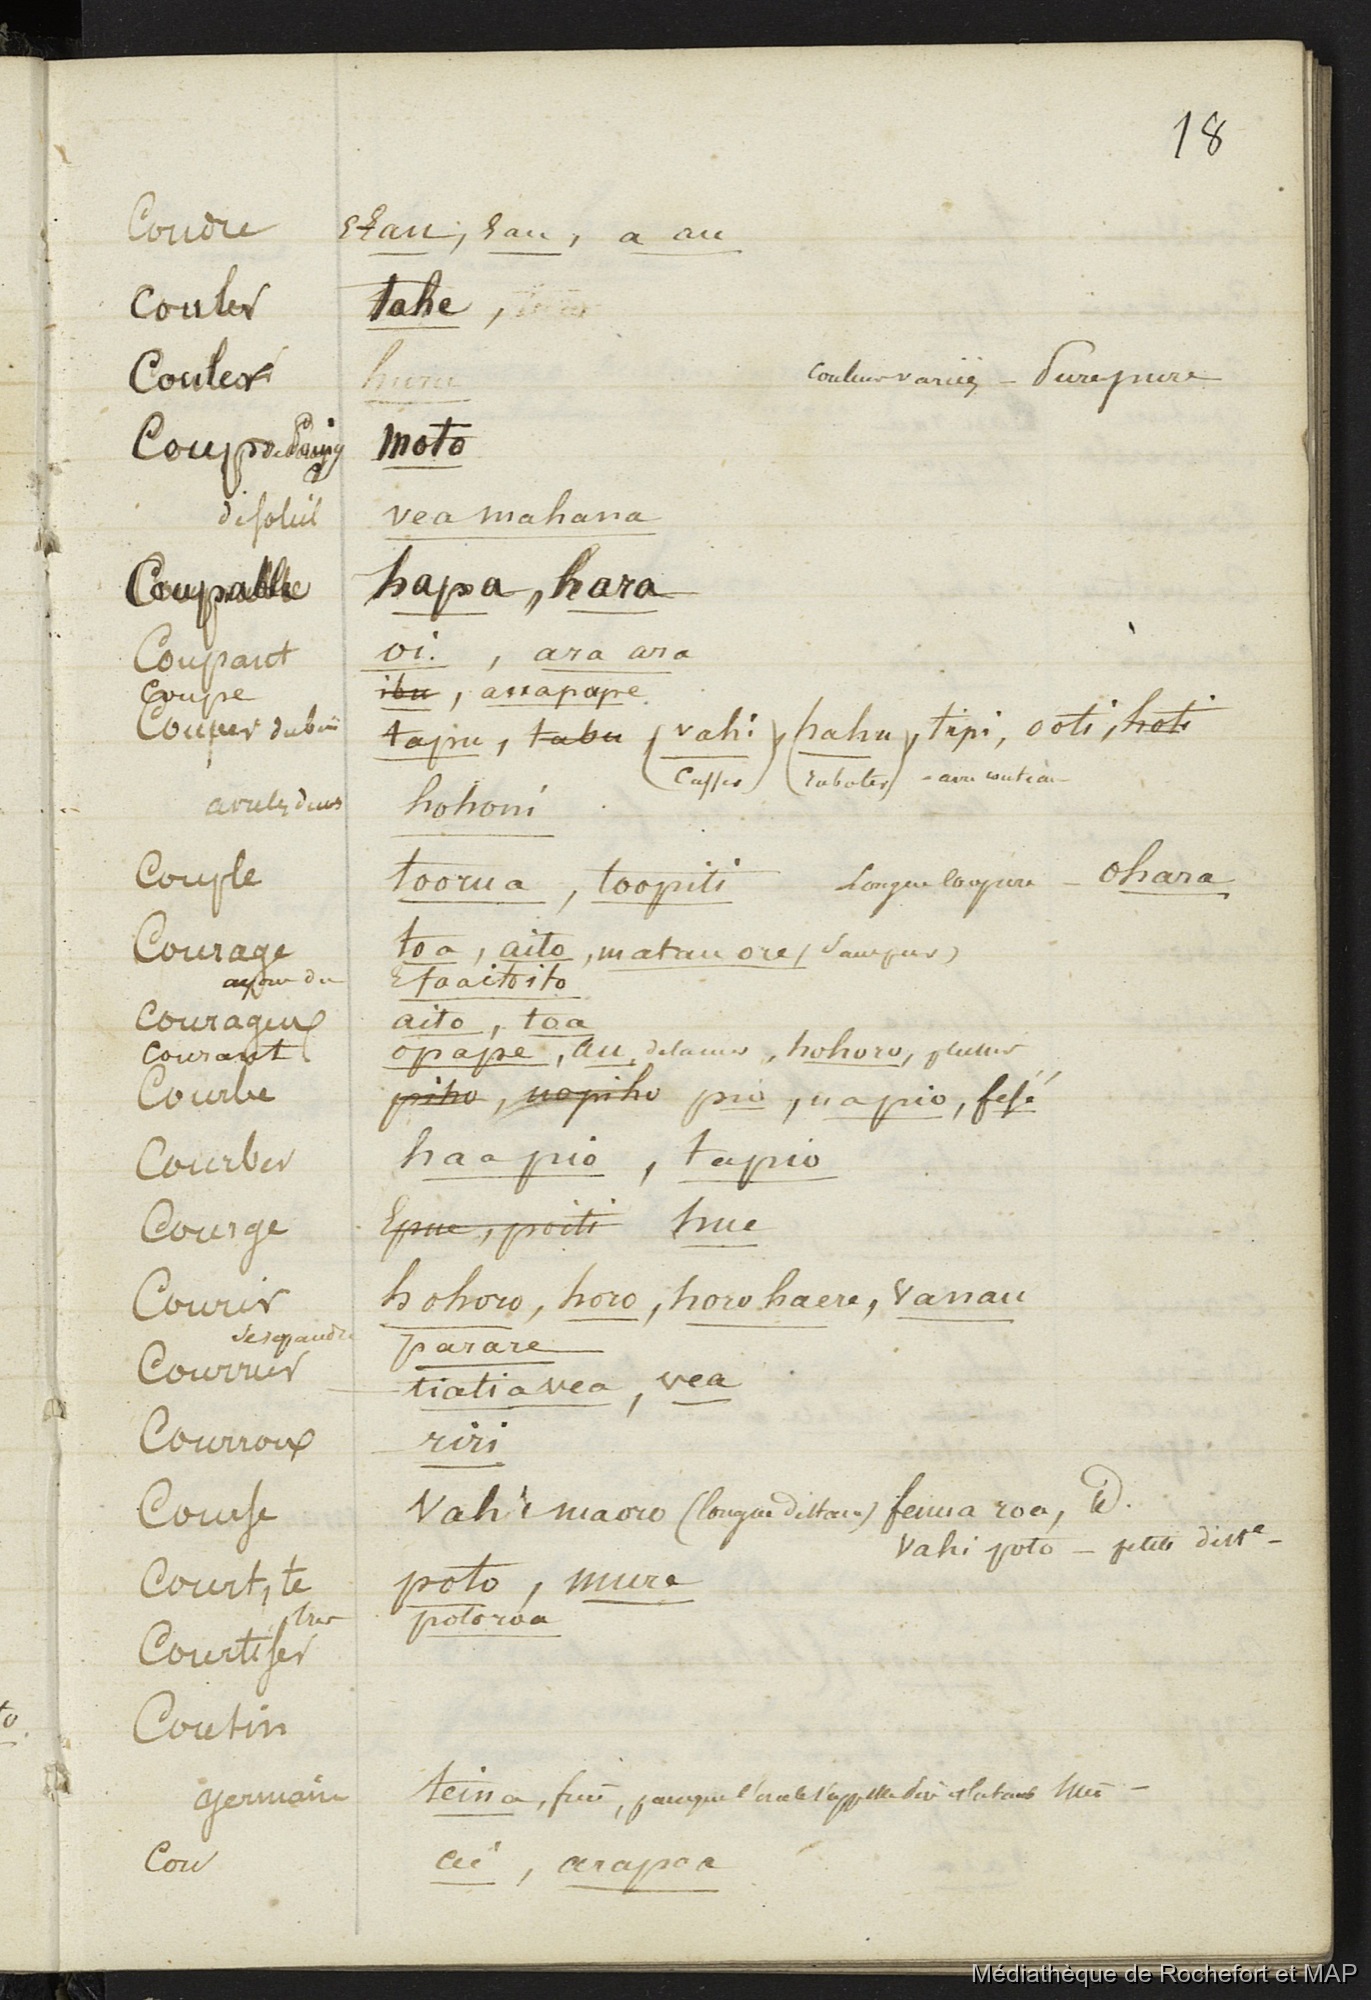 18
Coudre Etau, Eau, a au
Couler tahe,
Couler huru couleur variées - Purepure
Coup de Poing moto
de soleil vea mahana
Coupable hapa, hara
Coupant oi. , ara ara
Coupe ibu, auapape
Couper du bois tapu, tabu (vahi), (hahu), tipi, ooti, hoti
Casser raboter - avec couteau -
avec les dents hohoni
Couple toorua, toopiti Longue Coupure - ohara
Courage toa, aito, matau ore (Sans peur)
avoir du Efaaitoito
Courageux aito, toa
Courant opape, au, de la mer, hohoro, plutur
Courbe piho, uopiho pio, uapio, fefé
Courber haapio, tapio
Courge Epue, poiti hue
Courir hohoro, horo, horo haere, Vanau
Se répandre parare
Courrier tiatiavea, vea
Courroux riri
Course Vahi maoro (longue distance) fenua roa, id.
Vahi poto - petite distce -
Court, te poto, mure
très potoroa
Courtiser
Coutin
germain teina, frère, parceque l'oncle s'appelle père et la tante mère -
Cou ai, arapoa
Médiathèque de Rochefort et MAP